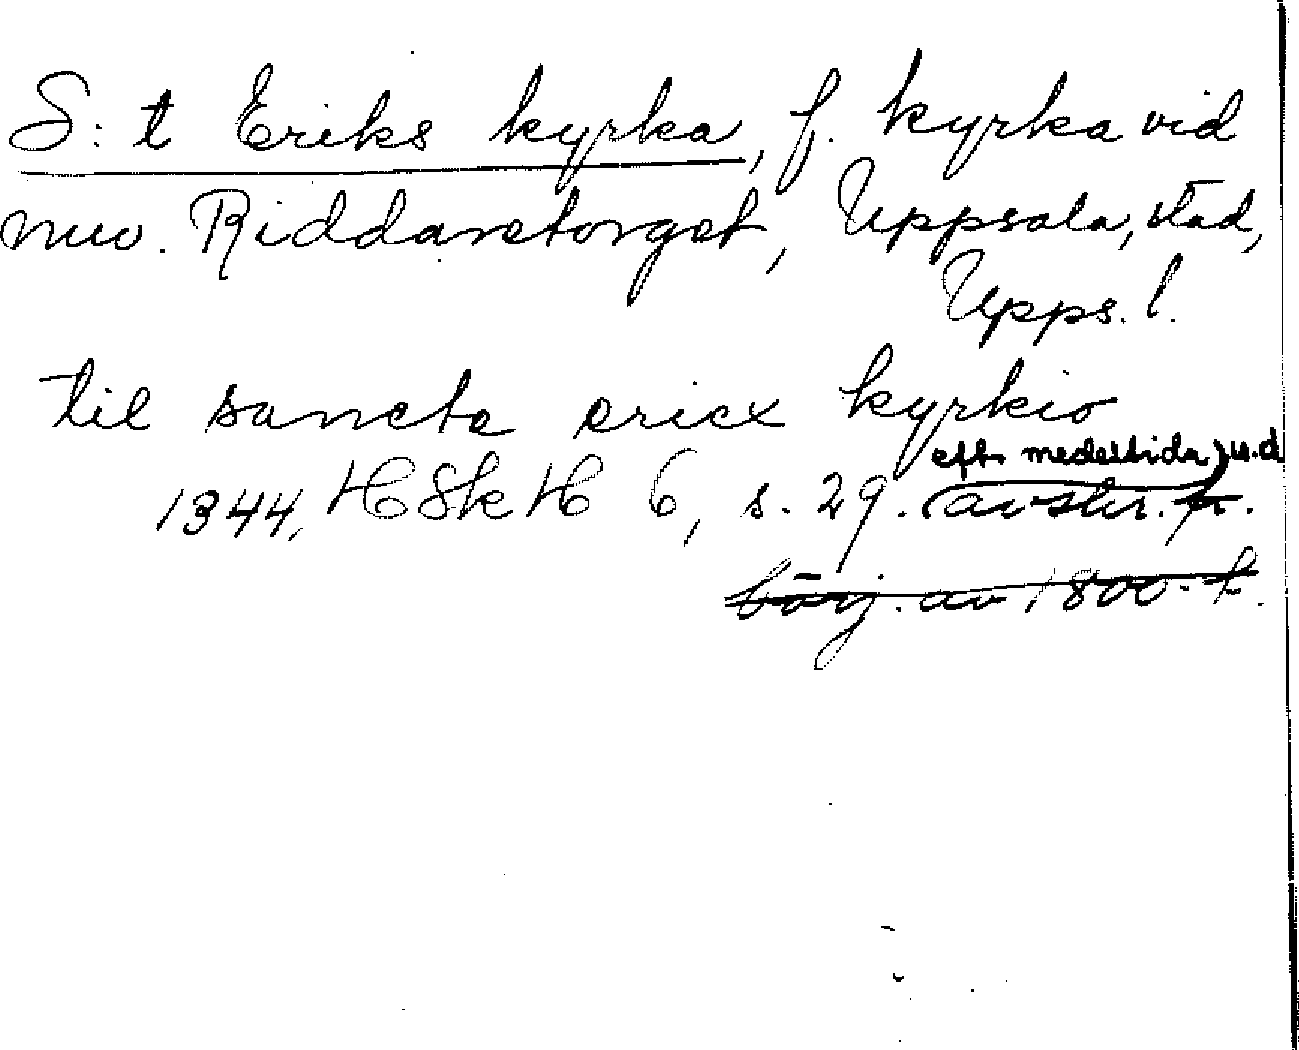 S:t Eriks kyrka, f. kyrka vid
nuv. Riddaretorget, Uppsala, stad,
Upps. l.
til sancte ericx kyrkio
eft. medeltida, u.d
1344, HSkH 6, s. 29. avskr. fr.
börj. av 1800-t.